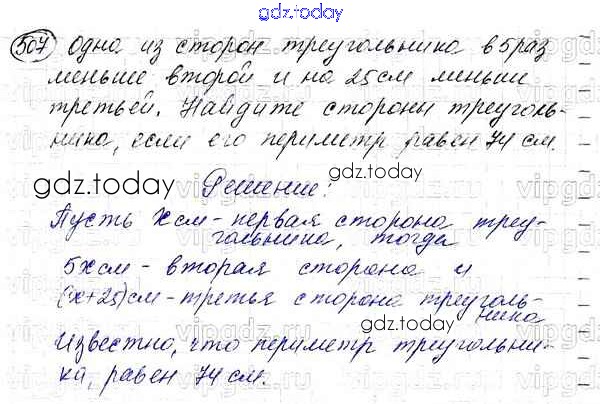 gdz.today
507 Одна из сторон треугольника в 5 раз
меньше второй и на 25 см меньше
третьей. Найдите стороны треуголь-
ника, если его периметр равен 74 см.
gdz.today
Решение:
gdz.today
Пусть x см - первая сторона треу-
гольника, тогда
5x см - вторая сторона и
(x+25) см - третья сторона треуголь-
ника
gdz.today
Известно, что периметр треугольни-
ка, равен 74 см.